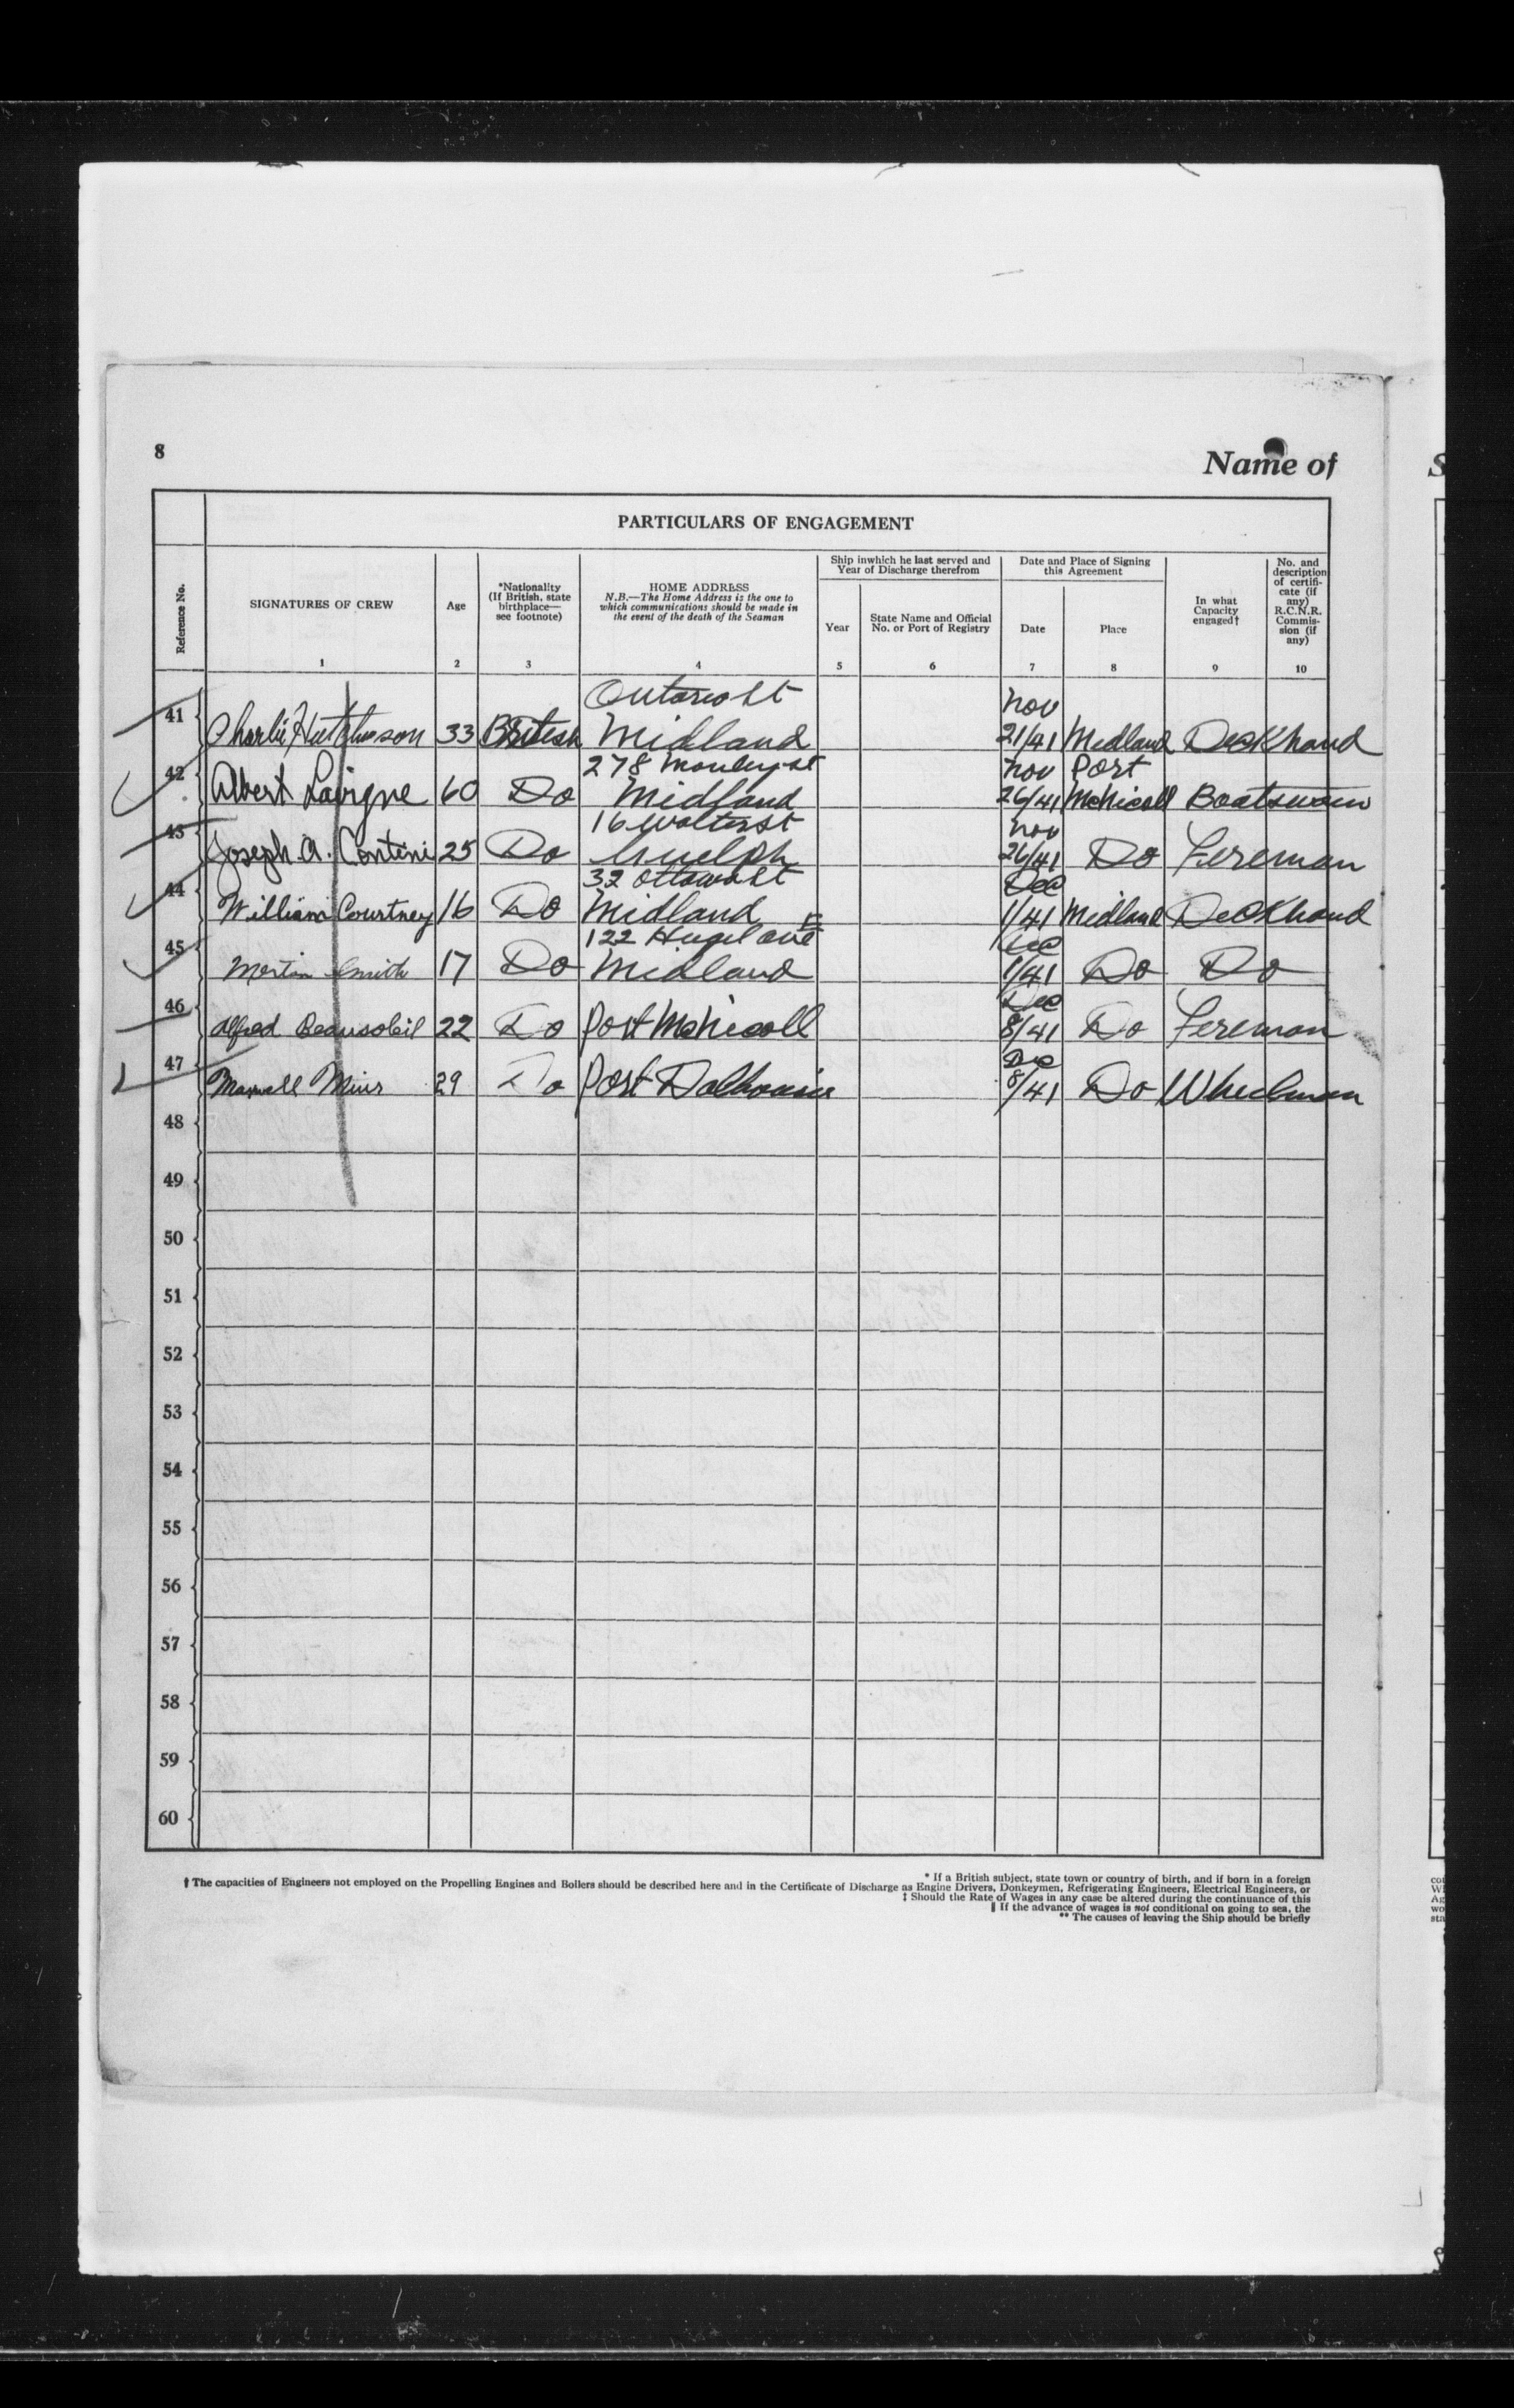 8
Name of
S
PARTICULARS OF ENGAGEMENT
Reference No.
SIGNATURES OF CREW
Age
*Nationality
(If British, state
birthplace—
see footnote)
HOME ADDRESS
N.B.—The Home Address is the one to
which communications should be made in
the event of the death of the Seaman
Ship inwhich he last served and
Year of Discharge therefrom
Year
State Name and Official
No. or Port of Registry
Date and Place of Signing
this Agreement
Date
Place
In what
Capacity
engaged†
No. and
description
of certifi-
cate (if
any)
R.C.N.R.
Commis-
sion (if
any)
1 2 3 4 5 6 7 8 9 10
Ontario St Nov
41 Charlie Hutchinson 33 British Midland 21/41 Midland Deckhand
278 St Nov Port
42 Albert Lavigne 60 Do Midland 26/41 McNicoll Boatswain
16 Walter St Nov
43 Joseph A. Contini 25 Do Guelph 26/41 Do Fireman
32 Ottawa St Dec
44 William Courtney 16 Do Midland 1/41 Midland Deckhand
122 Hugel Ave Dec
45 Smith 17 Do Midland 1/41 Do Do
Dec
46 Alfred Beausoleil 22 Do Port McNicoll 8/41 Do Fireman
Dec
47 Maxwell Muir 29 Do Port Dalhousie 8/41 Do Wheelman
48
49
50
51
52
53
54
55
56
57
58
59
60
* If a British subject, state town or country of birth, and if born in a foreign
† The capacities of Engineers not employed on the Propelling Engines and Boilers should be described here and in the Certificate of Discharge as Engine Drivers, Donkeymen, Refrigerating Engineers, Electrical Engineers, or
‡ Should the Rate of Wages in any case be altered during the continuance of this
‖ If the advance of wages is not conditional on going to sea, the
** The causes of leaving the Ship should be briefly